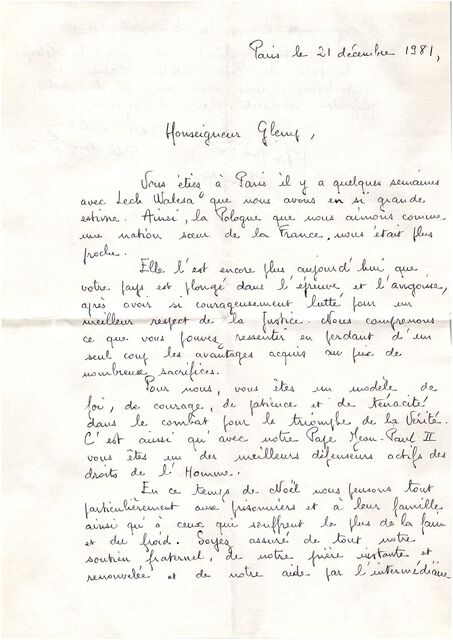 Paris le 21 décembre 1981,
Monseigneur Glemp,
Vous étiez à Paris il y a quelques semaines
avec Lech Walesa que nous avons en si grande
estime. Ainsi, la Pologne que nous aimons comme
une nation sœur de la France, nous était plus
proche.
Elle l'est encore plus aujourd'hui que
votre pays est plongé dans l'épreuve et l'angoisse,
après avoir si courageusement lutté pour un
meilleur respect de la Justice. Nous comprenons
ce que vous pouvez ressentir en perdant d'un
seul coup les avantages acquis au prix de
nombreux sacrifices.
Pour nous, vous êtes un modèle de
foi, de courage, de patience et de ténacité
dans le combat pour le triomphe de la Vérité.
C'est ainsi qu'avec notre Pape Jean-Paul II
vous êtes un des meilleurs défenseurs actifs des
droits de l'Homme.
En ce temps de Noël nous pensons tout
particulièrement aux prisonniers et à leur famille
ainsi qu'à ceux qui souffrent le plus de la faim
et du froid. Soyez assuré de tout notre
soutien fraternel, de notre prière instante et
renouvelée et de notre aide par l'intermédiaire